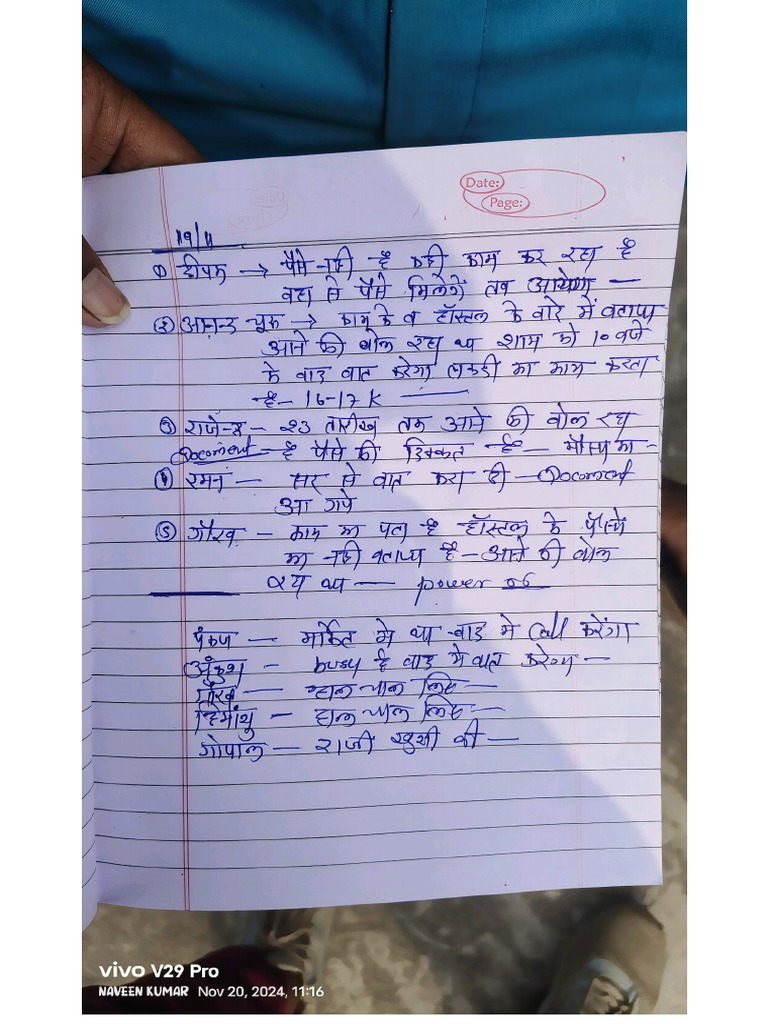 Date:
Page:
19/11
① दीपक → पैसे नही है कही काम कर रहा है
वहा से पैसे मिलेगें तब आयेगा —
② आनन्द चूरू → काम के व हॉस्टल के बारे में बताया
आने की बोल रहा था शाम को 10 बजे
के बाद बात करेगा लकडी का काम करता
है – 16-17 K —
③ राजेन्द्र – 23 तारीख तक आने की बोल रहा
Document – है पैसे की दिक्कत है –
④ रमन – सर से बात करा दी – Document
आ गये
⑤ गौरव – काम का पता है हॉस्टल के पैसो
का नही बताया है – आने की बोल
रहा था — power of
पंकज — मार्केट मे था बाद मे Call करेंगा
अंकुश – busy है बाद मे बात करेगा –
गौरव — हाल चाल लिए –
हिमांशु – हाल चाल लिए –
गोपाल – राजी खुशी की –
vivo V29 Pro
NAVEEN KUMAR Nov 20, 2024, 11:16